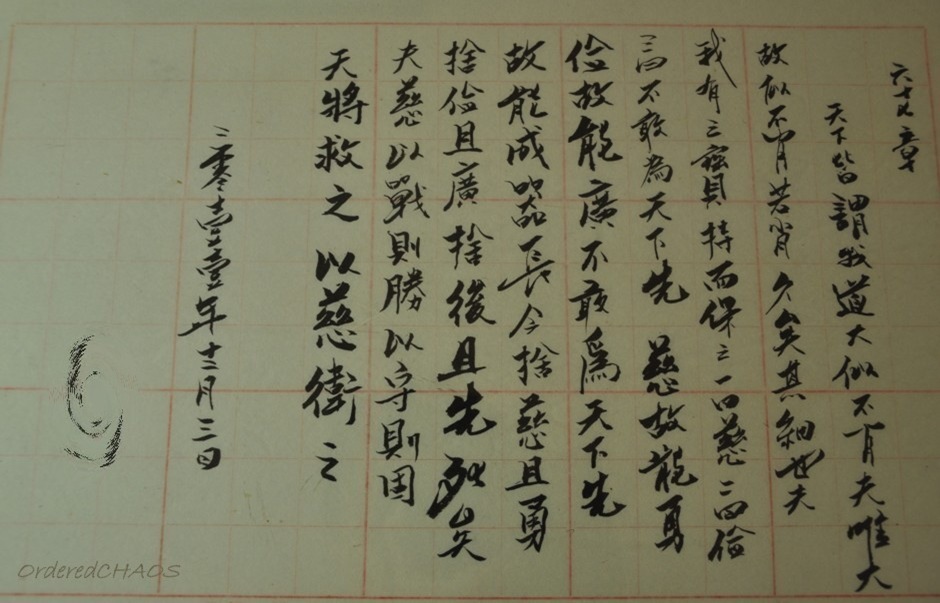 六十七章
天下皆謂我道大似不肖夫唯大
故似不肖若肖久矣其細也夫
我有三寶持而保之一曰慈二曰儉
三曰不敢為天下先 慈故能勇
儉故能廣不敢爲天下先
故能成器長今捨慈且勇
捨儉且廣捨後且先死矣
夫慈以戰則勝以守則固
天將救之 以慈衛之
二零壹壹年十二月三日
OrderedCHAOS